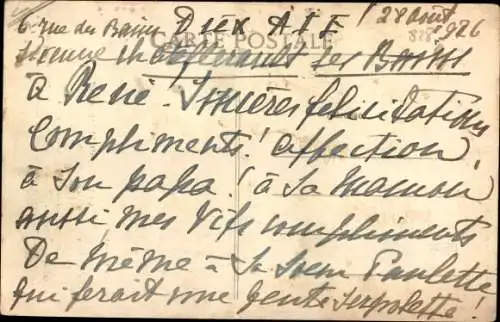 6 rue des Bains DIEU AIE 28 août 1926
CARTE POSTALE 828
Vienne Chatellerault Les Bains
à René. Sincères félicitations
Compliments! affection,
à son papa! à sa maman
aussi mes vifs compliments
De même à sa sœur Paulette
qui ferait une gente serpolette!